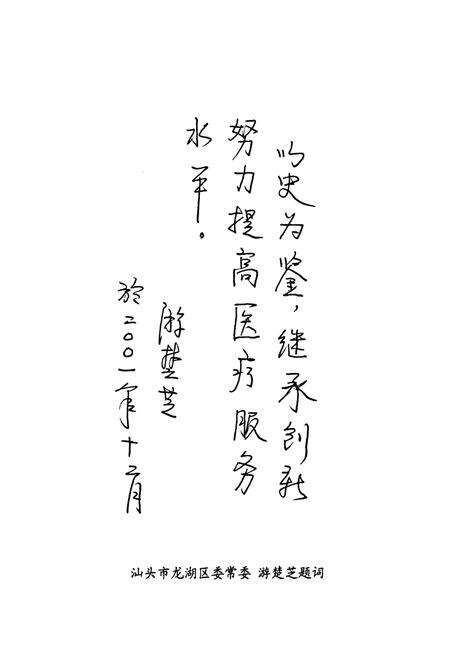 以史为鉴，继承创新
努力提高医疗服务
水平。
游楚芝
於二00一年十二月
汕头市龙湖区委常委 游楚芝题词